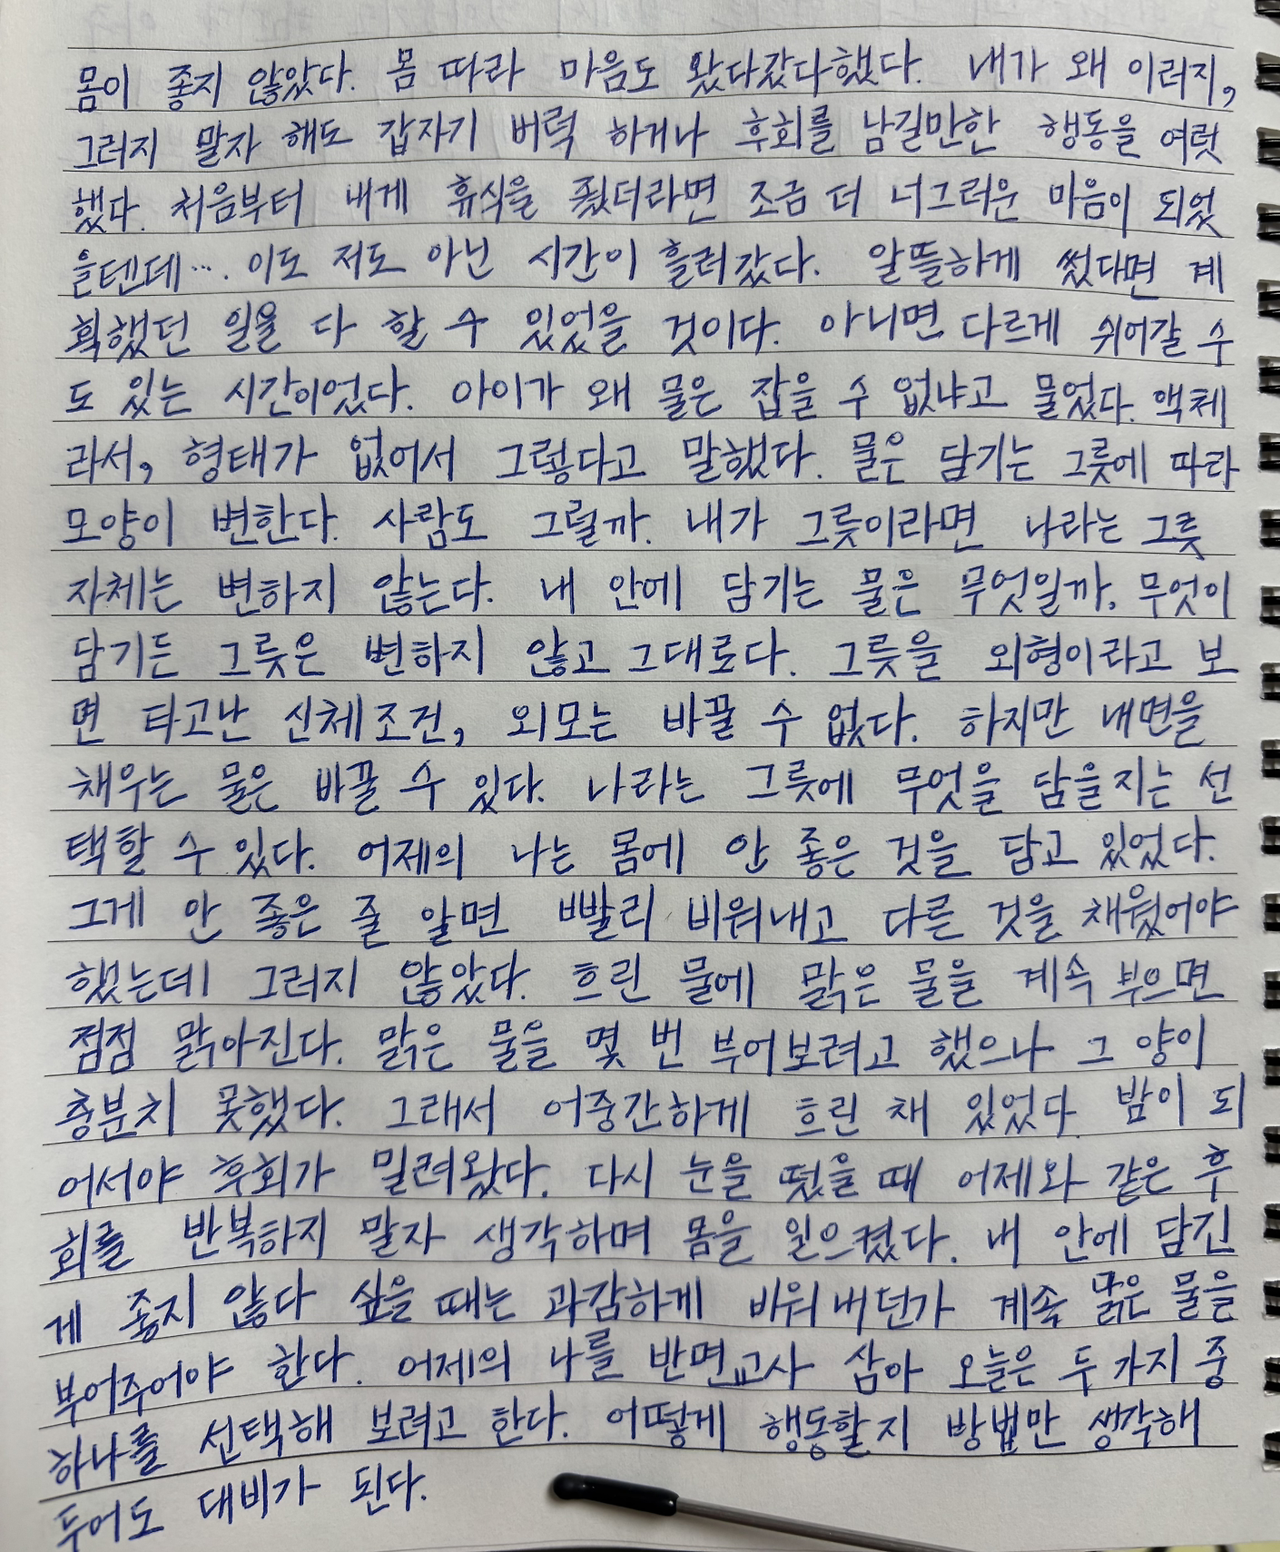 몸이 좋지 않았다. 몸 따라 마음도 왔다갔다했다. 내가 왜 이러지,
그러지 말자 해도 갑자기 버럭 하거나 후회를 남길만한 행동을 여럿
했다. 처음부터 내게 휴식을 줬더라면 조금 더 너그러운 마음이 되었
을텐데…. 이도 저도 아닌 시간이 흘러갔다. 알뜰하게 썼다면 계
획했던 일을 다 할 수 있었을 것이다. 아니면 다르게 쉬어갈 수
도 있는 시간이었다. 아이가 왜 물은 잡을 수 없냐고 물었다. 액체
라서, 형태가 없어서 그렇다고 말했다. 물은 담기는 그릇에 따라
모양이 변한다. 사람도 그럴까. 내가 그릇이라면 나라는 그릇
자체는 변하지 않는다. 내 안에 담기는 물은 무엇일까. 무엇이
담기든 그릇은 변하지 않고 그대로다. 그릇을 외형이라고 보
면 타고난 신체조건, 외모는 바꿀 수 없다. 하지만 내면을
채우는 물은 바꿀 수 있다. 나라는 그릇에 무엇을 담을지는 선
택할 수 있다. 어제의 나는 몸에 안 좋은 것을 담고 있었다.
그게 안 좋은 줄 알면 빨리 비워내고 다른 것을 채웠어야
했는데 그러지 않았다. 흐린 물에 맑은 물을 계속 부으면
점점 맑아진다. 맑은 물을 몇 번 부어보려고 했으나 그 양이
충분치 못했다. 그래서 어중간하게 흐린 채 있었다. 밤이 되
어서야 후회가 밀려왔다. 다시 눈을 떴을 때 어제와 같은 후
회를 반복하지 말자 생각하며 몸을 일으켰다. 내 안에 담긴
게 좋지 않다 싶을 때는 과감하게 비워버던가 계속 맑은 물을
부어주어야 한다. 어제의 나를 반면교사 삼아 오늘은 두 가지 중
하나를 선택해 보려고 한다. 어떻게 행동할지 방법만 생각해
두어도 대비가 된다.